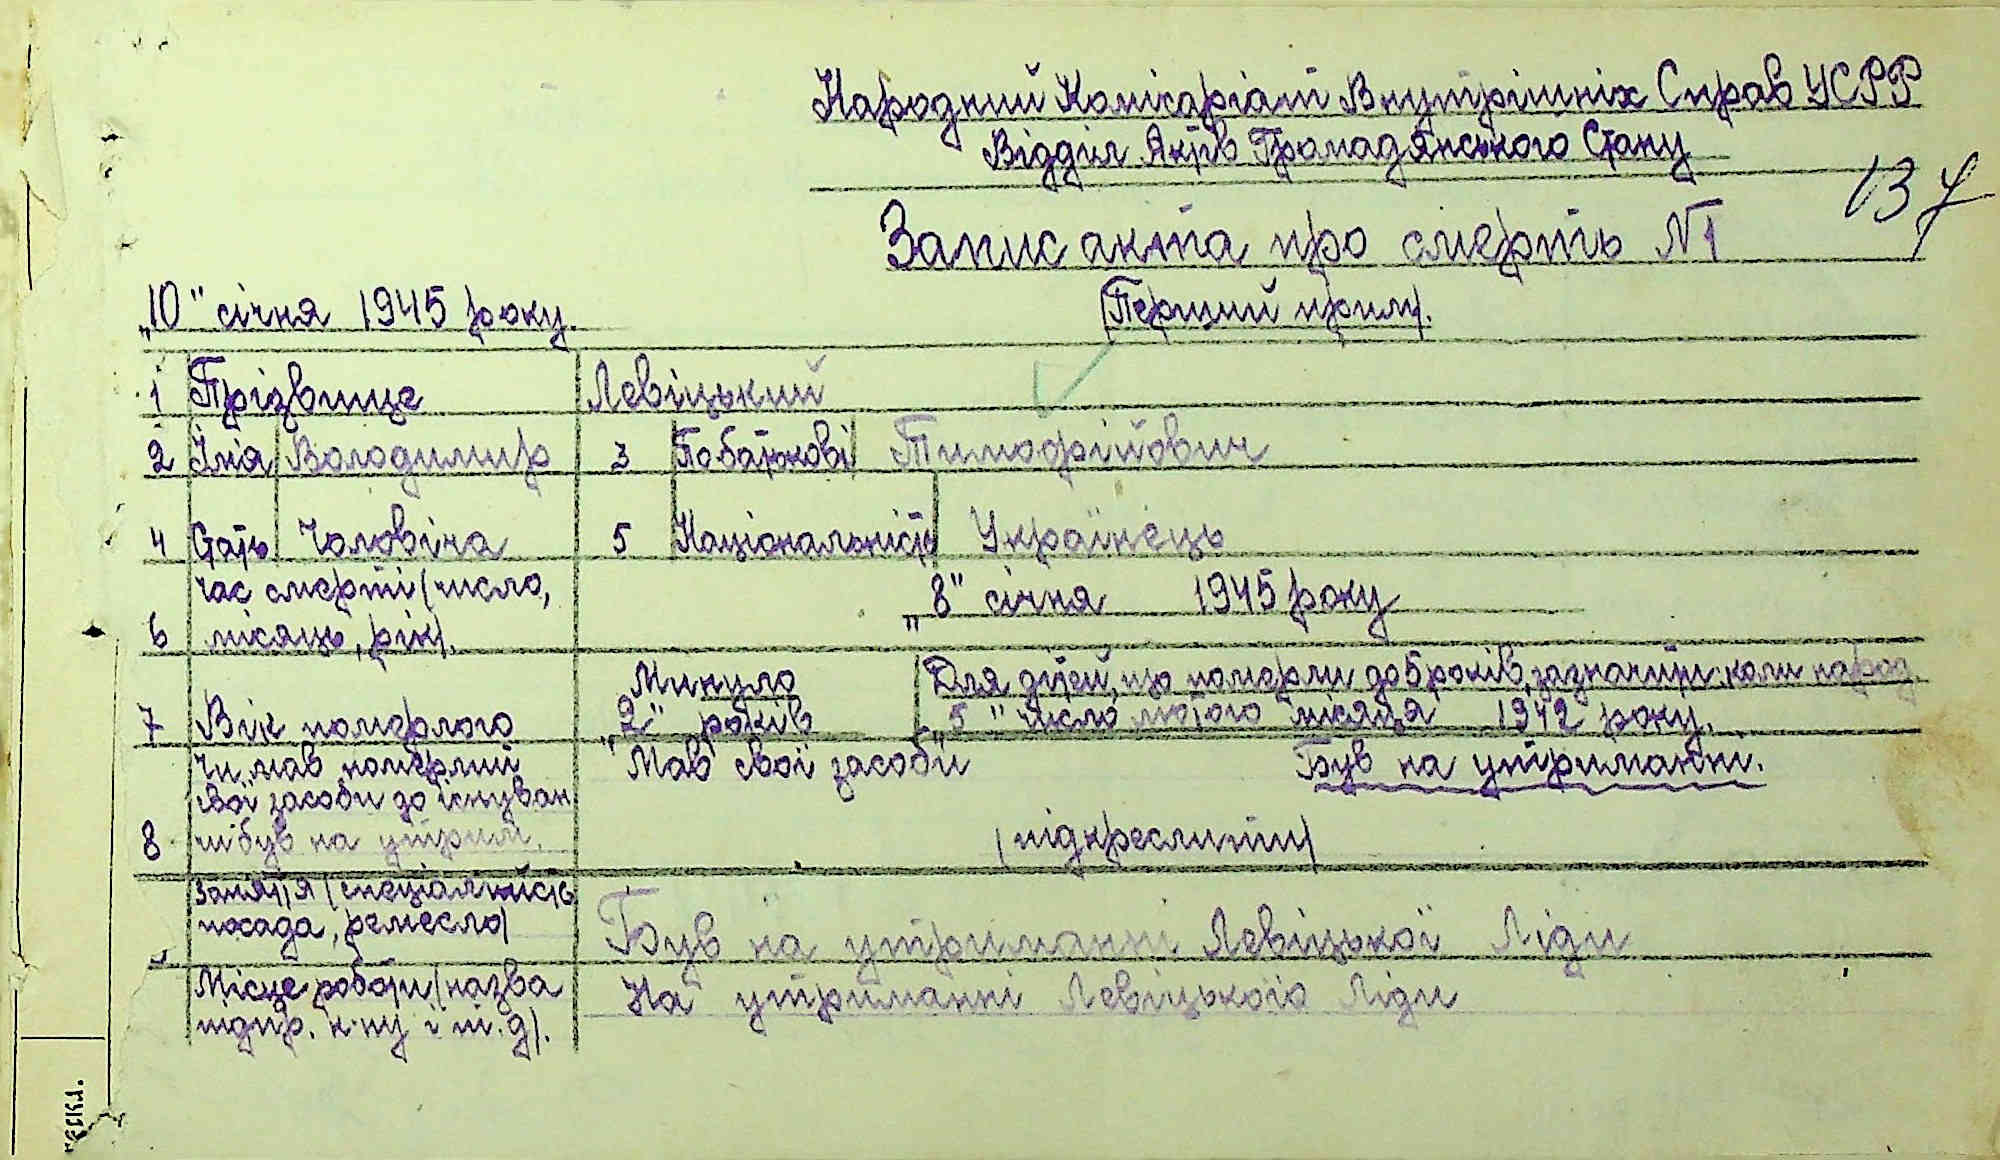 Народний Комісаріат Внутрішніх Справ УСРР
Відділ Актів Громадянського Стану
137
Запис акта про смерть №1
„10" січня 1945 року.
(Перший прим).
1 Прізвище Левіцький
2 Імя Володимир 3 Побатькові Тимофійович
4 Стать Чоловіча 5 Національність Українець
Час смерті (число,
„8" січня 1945 року
6 місяць, рік).
Минуло Для дітей, що померли до 5 років, зазначити коли народ.
7 Вік померлого „2" років „5" число лютого місяця 1942 року.
Чи мав померлий Мав свої засоби Був на утриманні.
свої засоби до існуван
8 чи був на утрим. (підкреслити)
Заняття (спеціальність
посада, ремесло) Був на утриманні Левіцької Ліди
Місце роботи (назва На утриманні Левіцької Ліди
підпр. к-ну і т. д).